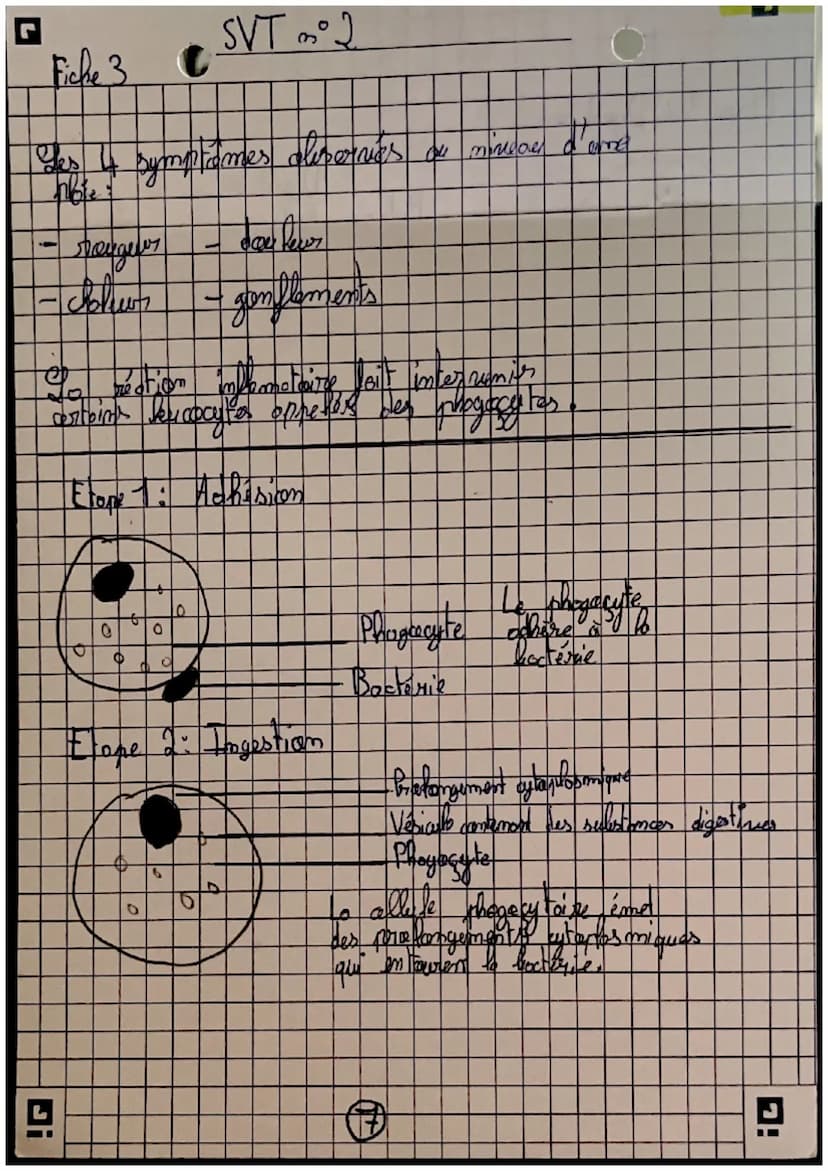 SVT n°2
Fiche 3
Les 4 symptômes observés au niveau d'une
plaie:
- rougeur - douleur
- chaleur - gonflements
La réaction inflamatoire fait intervenir
certains leucocytes appelés des phagocytes.
Etape 1: Adhésion
Phagocyte
Bactérie
Le phagocyte
adhère à la
bactérie
Etape 2: Ingestion
Prolongement cytaplosmique
Vésicule contenant des substances digestives
Phagocyte
La cellule phagocytaire émet
des prolongements cytaplosmiques
qui entourent la bactérie.
7